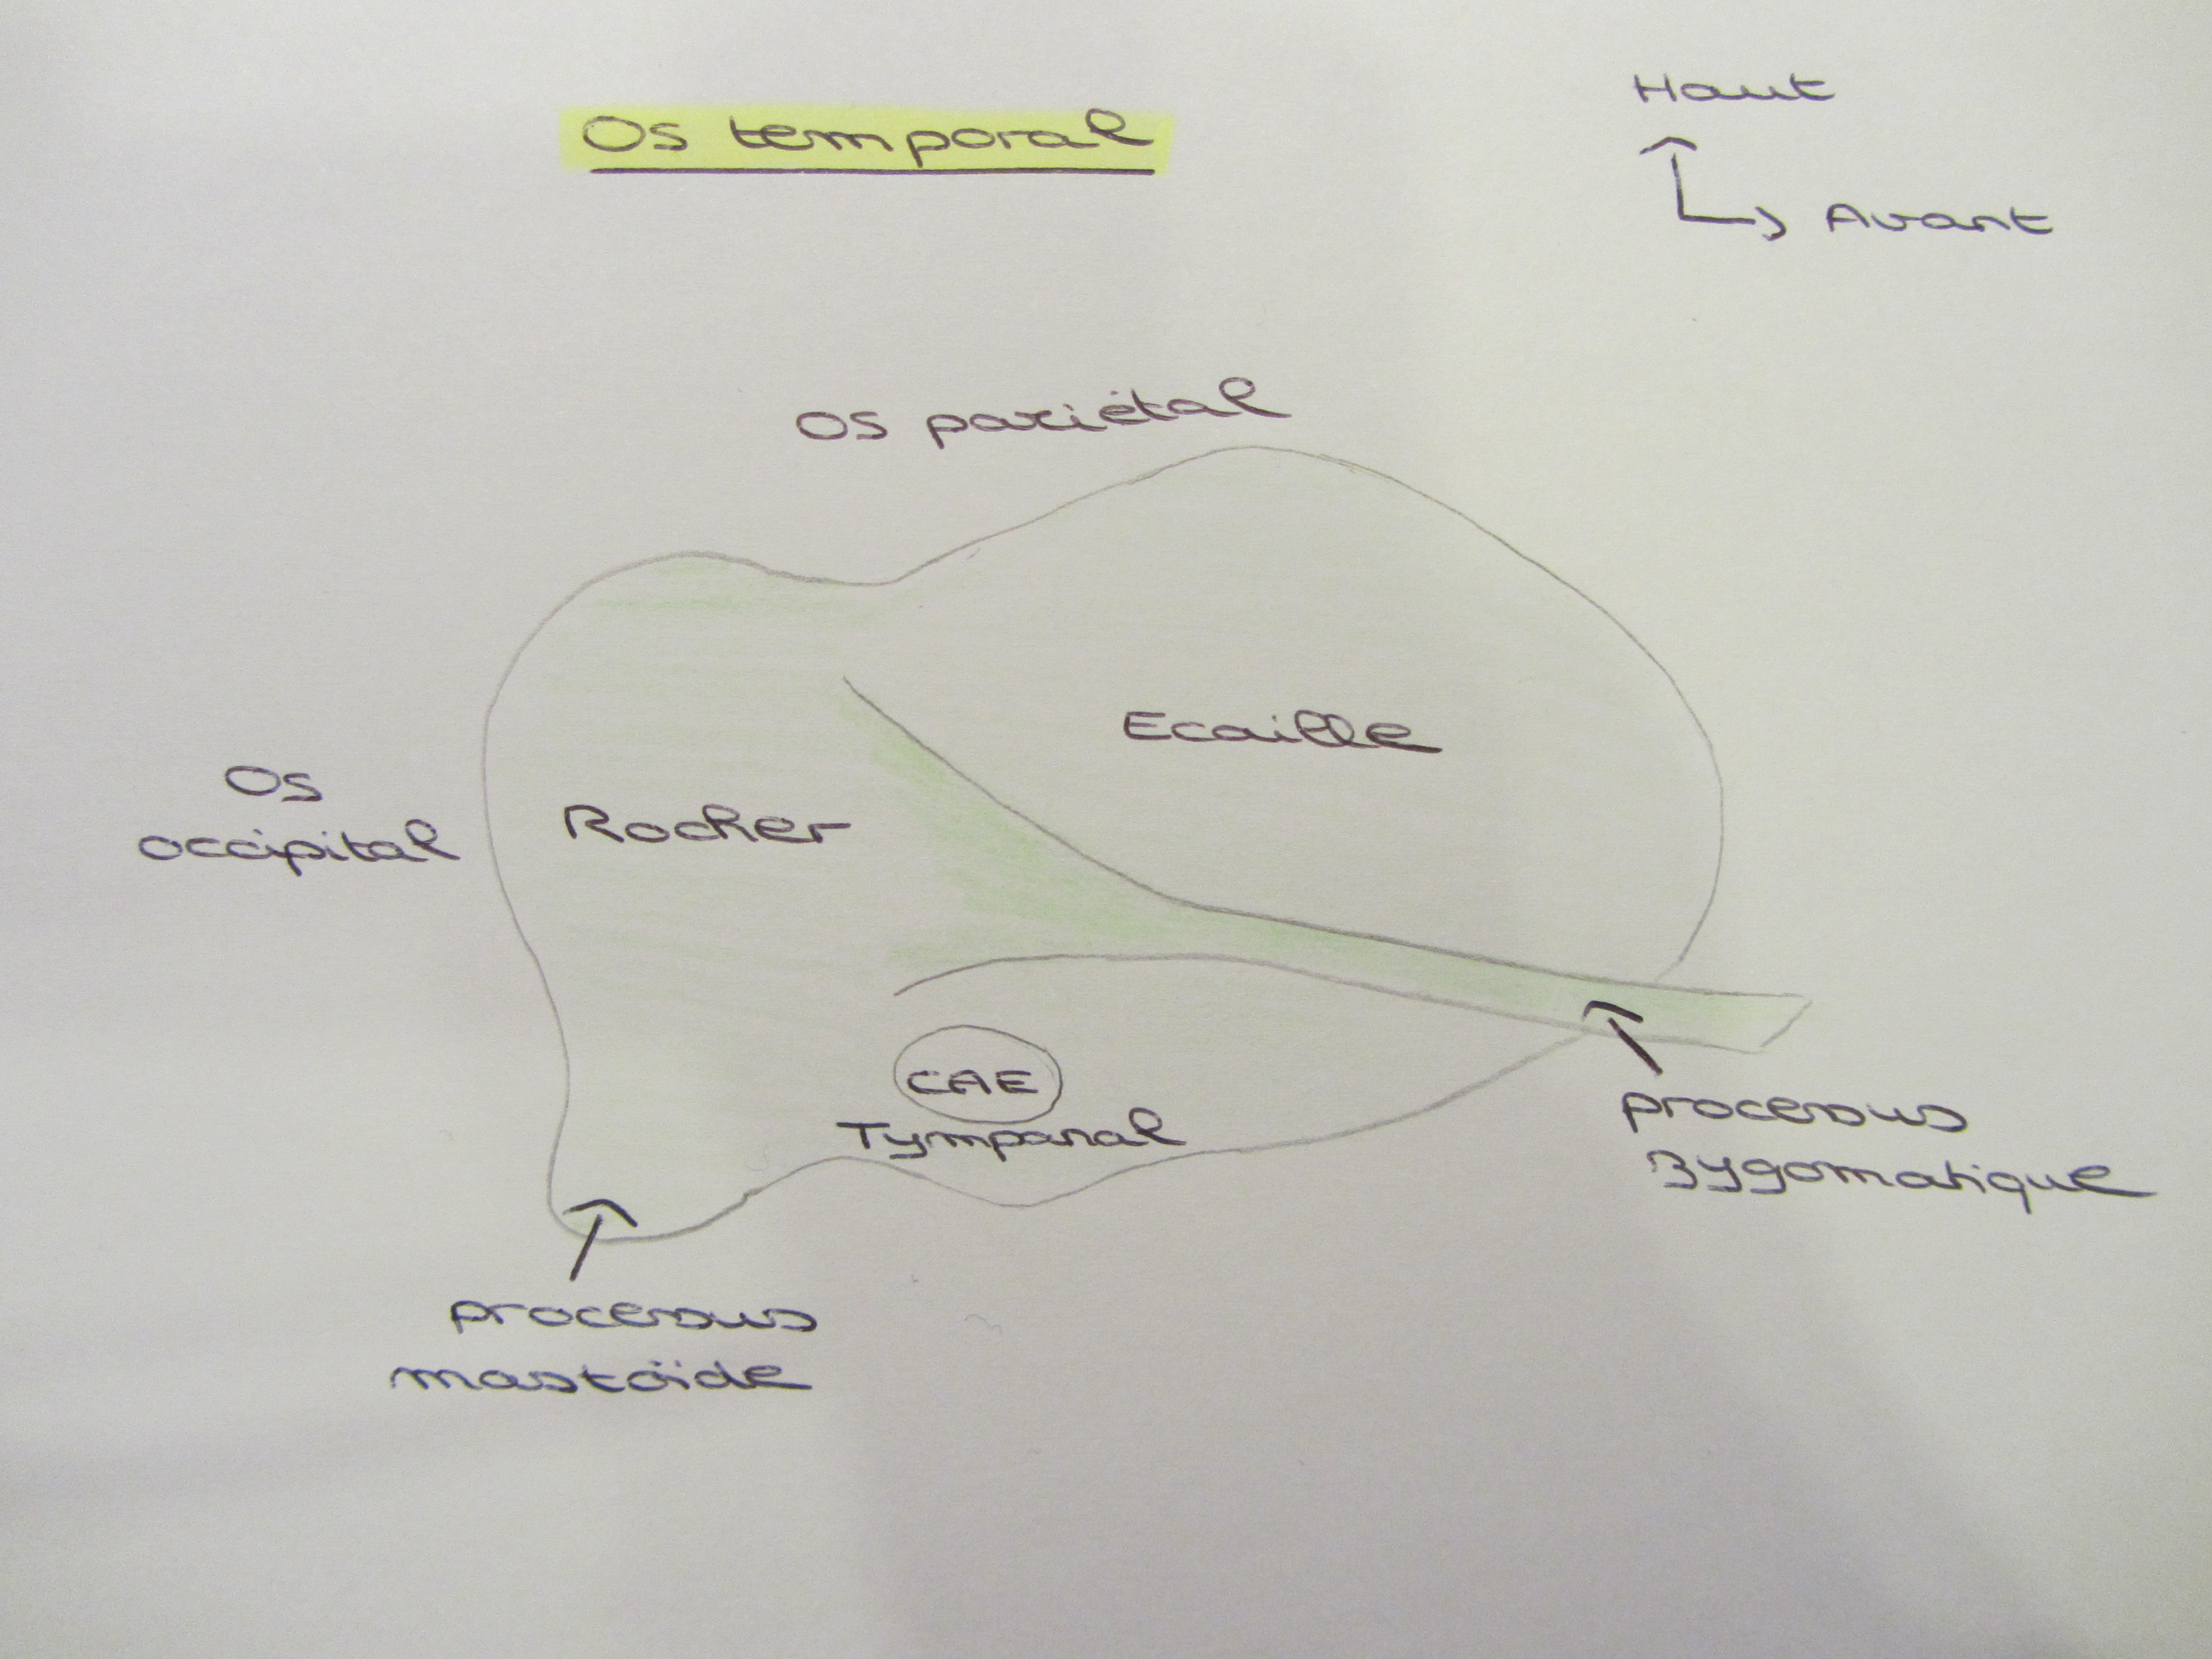 Os temporal
Haut
Avant
Os pariétal
Ecaille
Os
occipital
Rocher
CAE
Tympanal
processus
zygomatique
processus
mastoïde